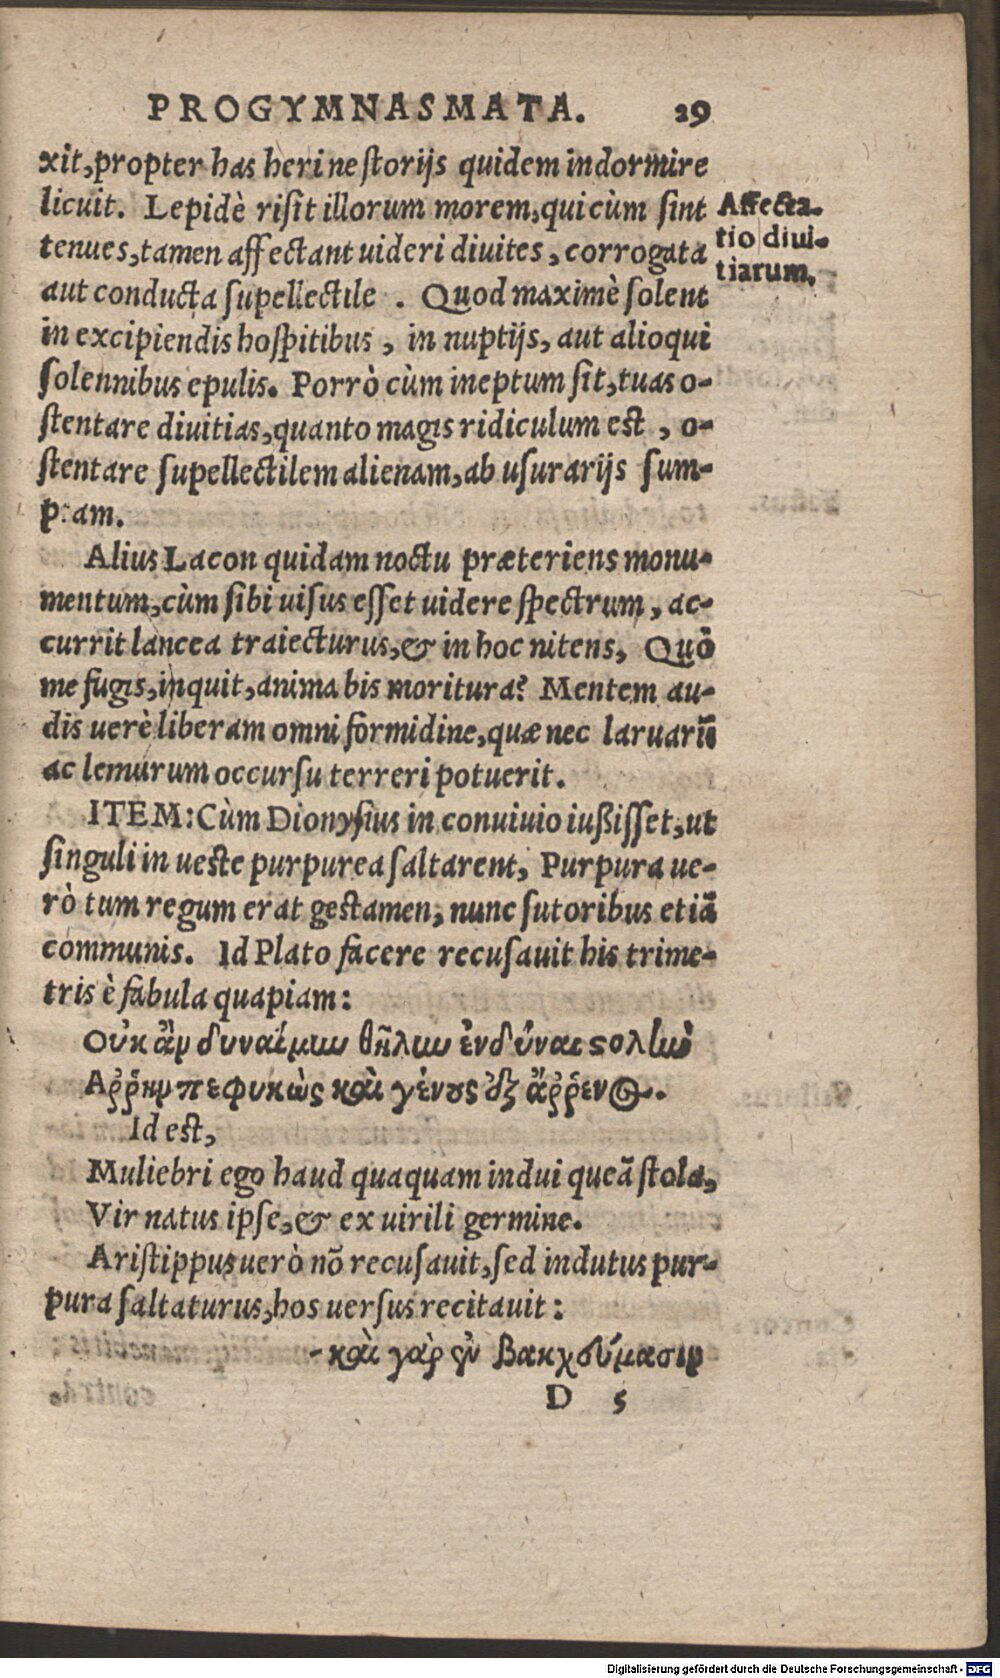 PROGYMNASMATA. 29
xit, propter has heri ne storijs quidem indormire
licuit. Lepidè risit illorum morem, qui cùm sint
tenues, tamen affectant uideri diuites, corrogata
aut conducta supellectile. Quod maximè solent
in excipiendis hospitibus, in nuptijs, aut alioqui
solennibus epulis. Porrò cùm ineptum sit, tuas o-
stentare diuitias, quanto magis ridiculum est, o-
stentare supellectilem alienam, ab usurarijs sum-
ptam.
Affecta-
tio diui-
tiarum.
Alius Lacon quidam noctu præteriens monu-
mentum, cùm sibi uisus esset uidere spectrum, ac-
currit lancea traiecturus, & in hoc nitens, Quò
me fugis, inquit, anima bis moritura? Mentem au-
dis uerè liberam omni formidine, quæ nec laruarũ
ac lemurum occursu terreri potuerit.
ITEM: Cùm Dionysius in conuiuio iußisset, ut
singuli in ueste purpurea saltarent, Purpura ue-
rò tum regum erat gestamen, nunc sutoribus etiã
communis. Id Plato facere recusauit his trime-
tris è fabula quapiam:
Οὐκ ἂν δυναίμην θῆλυν ἐνδύναι στολὴν
Ἀῤῥην πεφυκὼς καὶ γένους ἐξ ἄῤῥενος.
Id est,
Muliebri ego haud quaquam indui queã stola,
Vir natus ipse, & ex uirili germine.
Aristippus uerò nõ recusauit, sed indutus pur-
pura saltaturus, hos uersus recitauit:
-καὶ γὰρ ἐν βακχεύμασιν
D 5
Digitalisierung gefördert durch die Deutsche Forschungsgemeinschaft - DFG